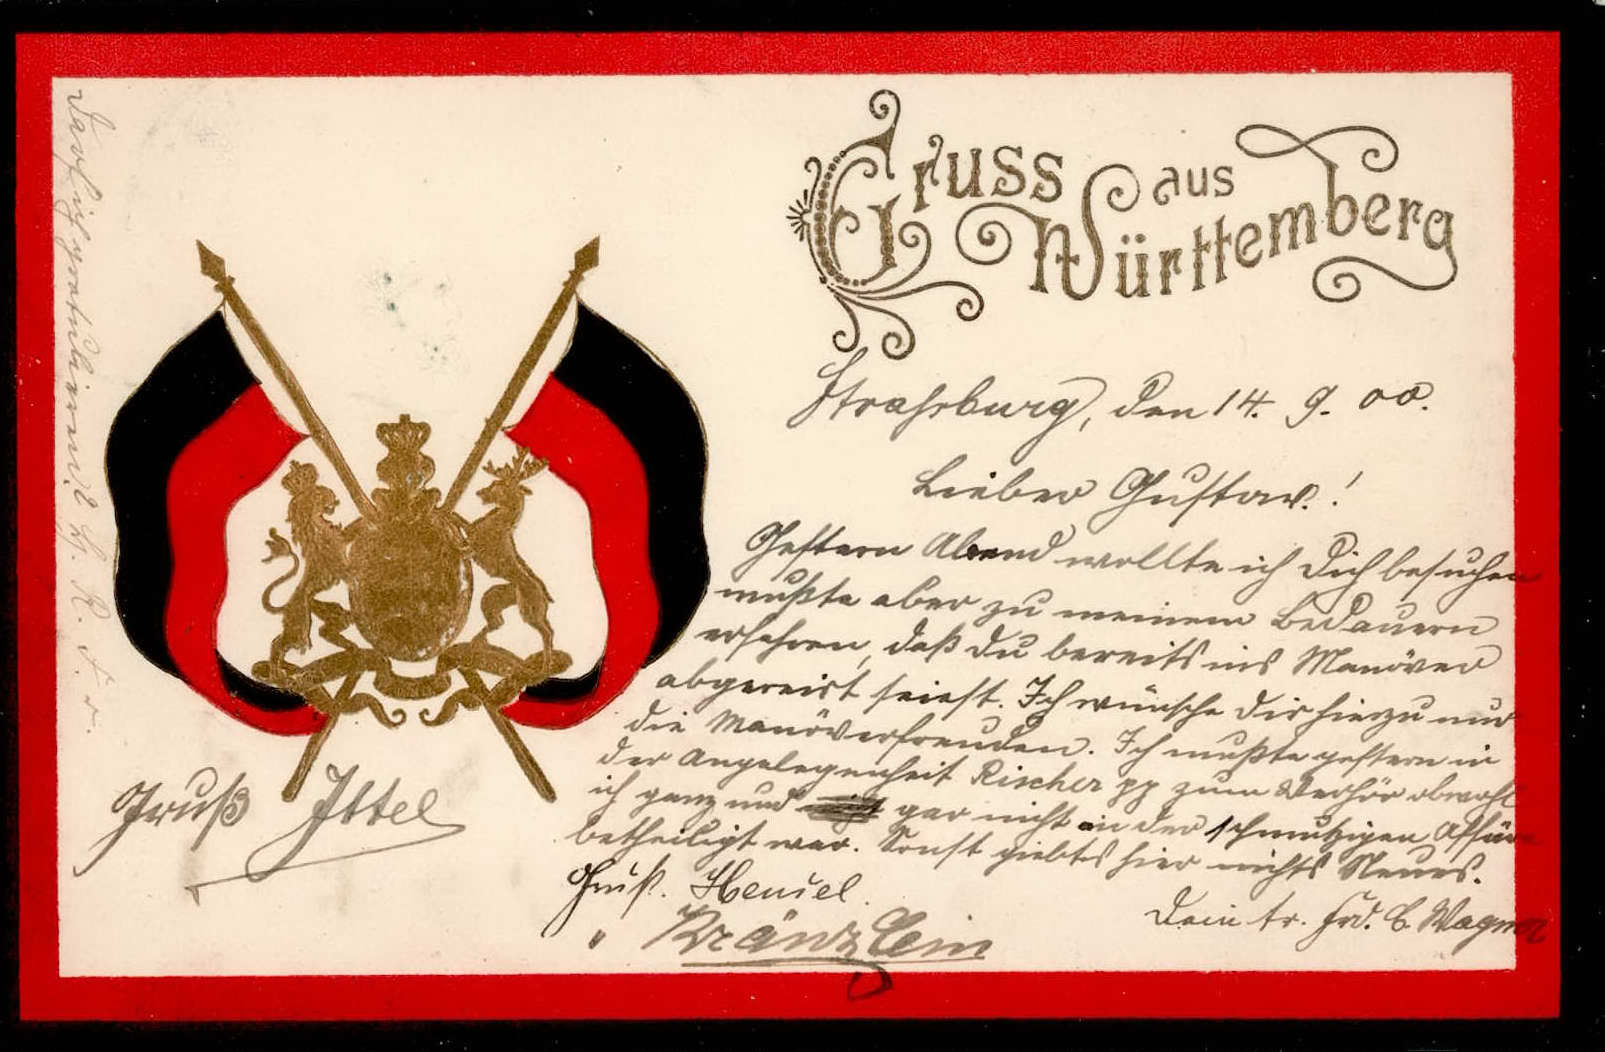 Gruss aus
Württemberg
Straßburg, den 14. 9. 00.
Lieber Gustav!
Gestern Abend wollte ich Dich besuchen
mußte aber zu meinem Bedauern
erfahren, daß du bereits ins Manöver
abgereist seiest. Ich wünsche dir hiezu nur
die Manöverfreuden. Ich mußte gestern in
der Angelegenheit Rischer pp zum Verhör obwohl
ich ganz und gar nicht an der schmutzigen Affäre
betheiligt war. Sonst giebt's hier nichts Neues.
Dein tr. Frd. C. Wagner
Gruß. Hensel.
" Kränzlein
Gruß Ittel
Darf ich gratulieren?